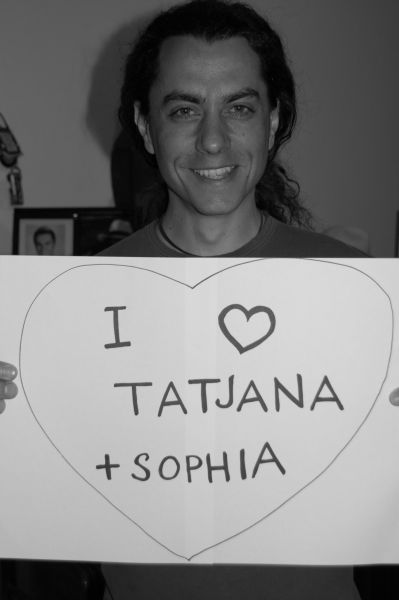 I ♡
TATJANA
+ SOPHIA